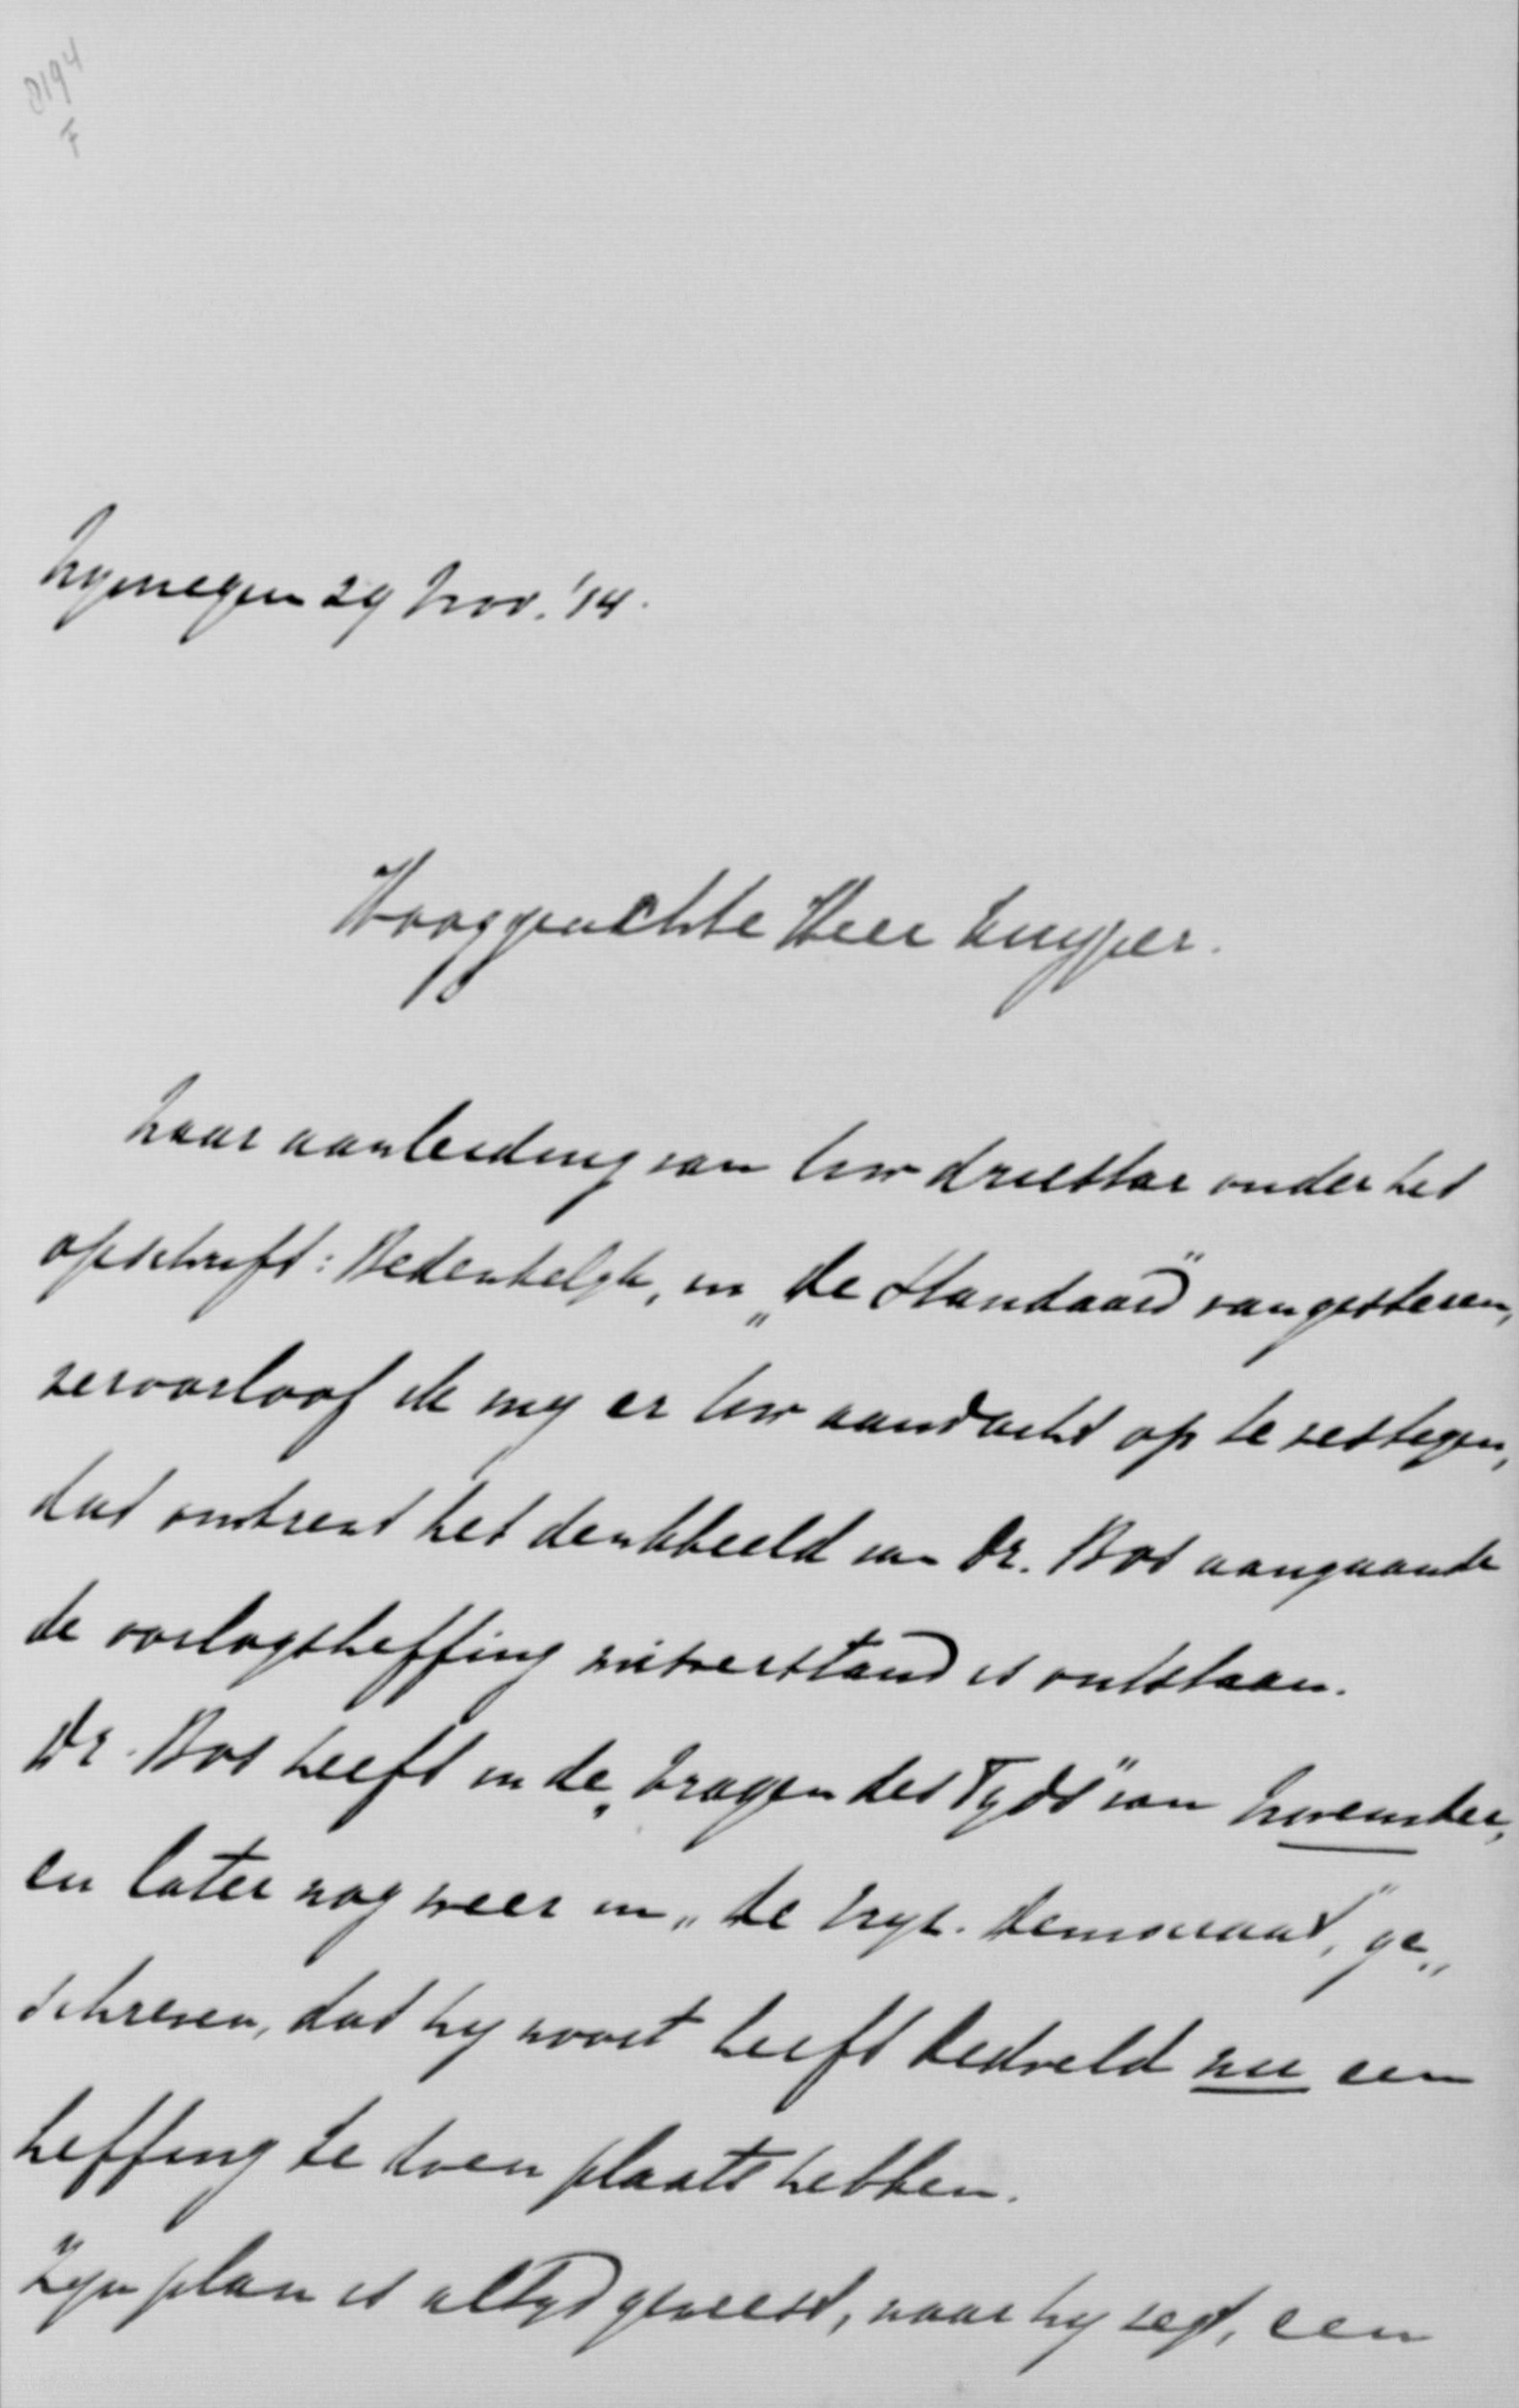 8194
F
Nymegen 29 Nov. '14.
Hooggeachte Heer Kuyper.
Naar aanleiding van Uw driestar onder het
opschrift: Bedenkelyk, in „De Standaard" van gisteren,
veroorloof ik my er Uw aandacht op te vestigen,
dat omtrent het denkbeeld van Dr. Bos aangaande
de oorlogsheffing misverstand is ontstaan.
Dr. Bos heeft in de „Vragen des Tyds" van November,
en later nog weer in „De Vryz. Democraat", ge„
schreven, dat hy nooit heeft bedoeld nu een
heffing te doen plaats hebben.
Zyn plan is altyd geweest, naar hy zegt, een